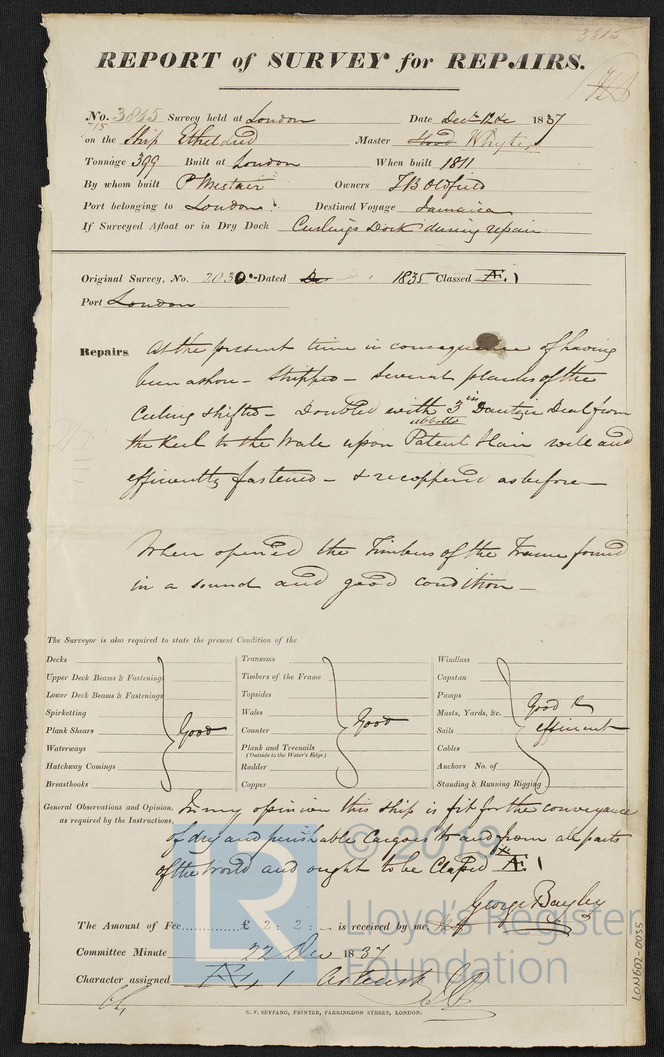 3815
REPORT of SURVEY for REPAIRS.
No. 3815 Survey held at London Date Decr 12th 1837
715
on the Ship Etheldred Master Hood Whyte
Tonnage 399 Built at London When built 1811
By whom built P Mestair Owners T B Oldfield
Port belonging to London Destined Voyage Jamaica
If Surveyed Afloat or in Dry Dock Curlings Dock during repair
Original Survey, No. 2030 Dated 1835 Classed Æ 1
Port London
Repairs At the present time in consequence of having
been ashore - Stripped - Several planks of the
Ceiling shifted - Doubled with 3 in Dantzic Deal from
the Keel to the Wale upon Patent Hair well and
efficiently fastened - & recoppered as before
When opened the Timbers of the Frame found
in a sound and good condition -
The Surveyor is also required to state the present Condition of the
Decks
Upper Deck Beams & Fastenings
Lower Deck Beams & Fastenings
Spirketting
Plank Shears Good
Waterways
Hatchway Comings
Breasthooks
Transoms
Timbers of the Frame
Topsides
Wales
Counter Good
Plank and Treenails
(Outside to the Water's Edge)
Rudder
Copper
Windlass
Capstan
Pumps
Masts, Yards, &c. Good &
Sails efficient
Cables
Anchors No. of
Standing & Running Rigging
General Observations and Opinion, In my opinion this ship is fit for the conveyance
as required by the Instructions,
of dry and perishable Cargoes to and from all parts
of the World and ought to be Classed Æ 1
George Bayley
The Amount of Fee............£ 2 : 2 : - is received by me,
Committee Minute 22 Dec 1837
Character assigned Æ 1
C. F. SEYFANG, PRINTER, FARRINGDON STREET, LONDON.
LON602-0035
© 2019
LR
Lloyd's Register
Foundation